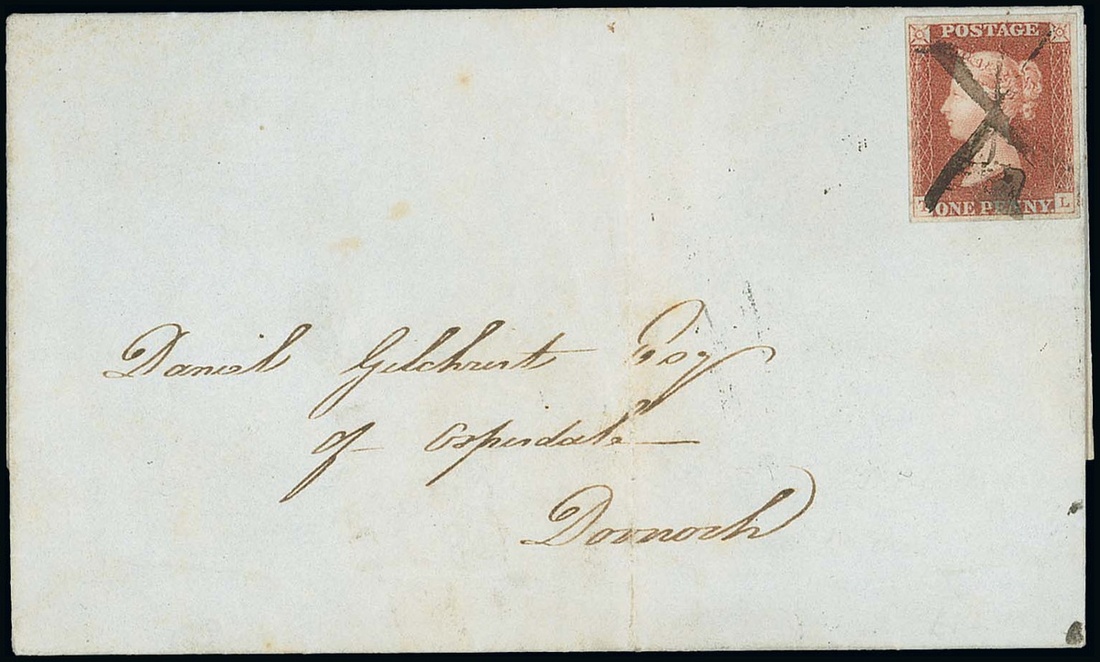 POSTAGE
T ONE PENNY. L
Daniel Gilchrist Esq
of Ospisdale
Dornoch